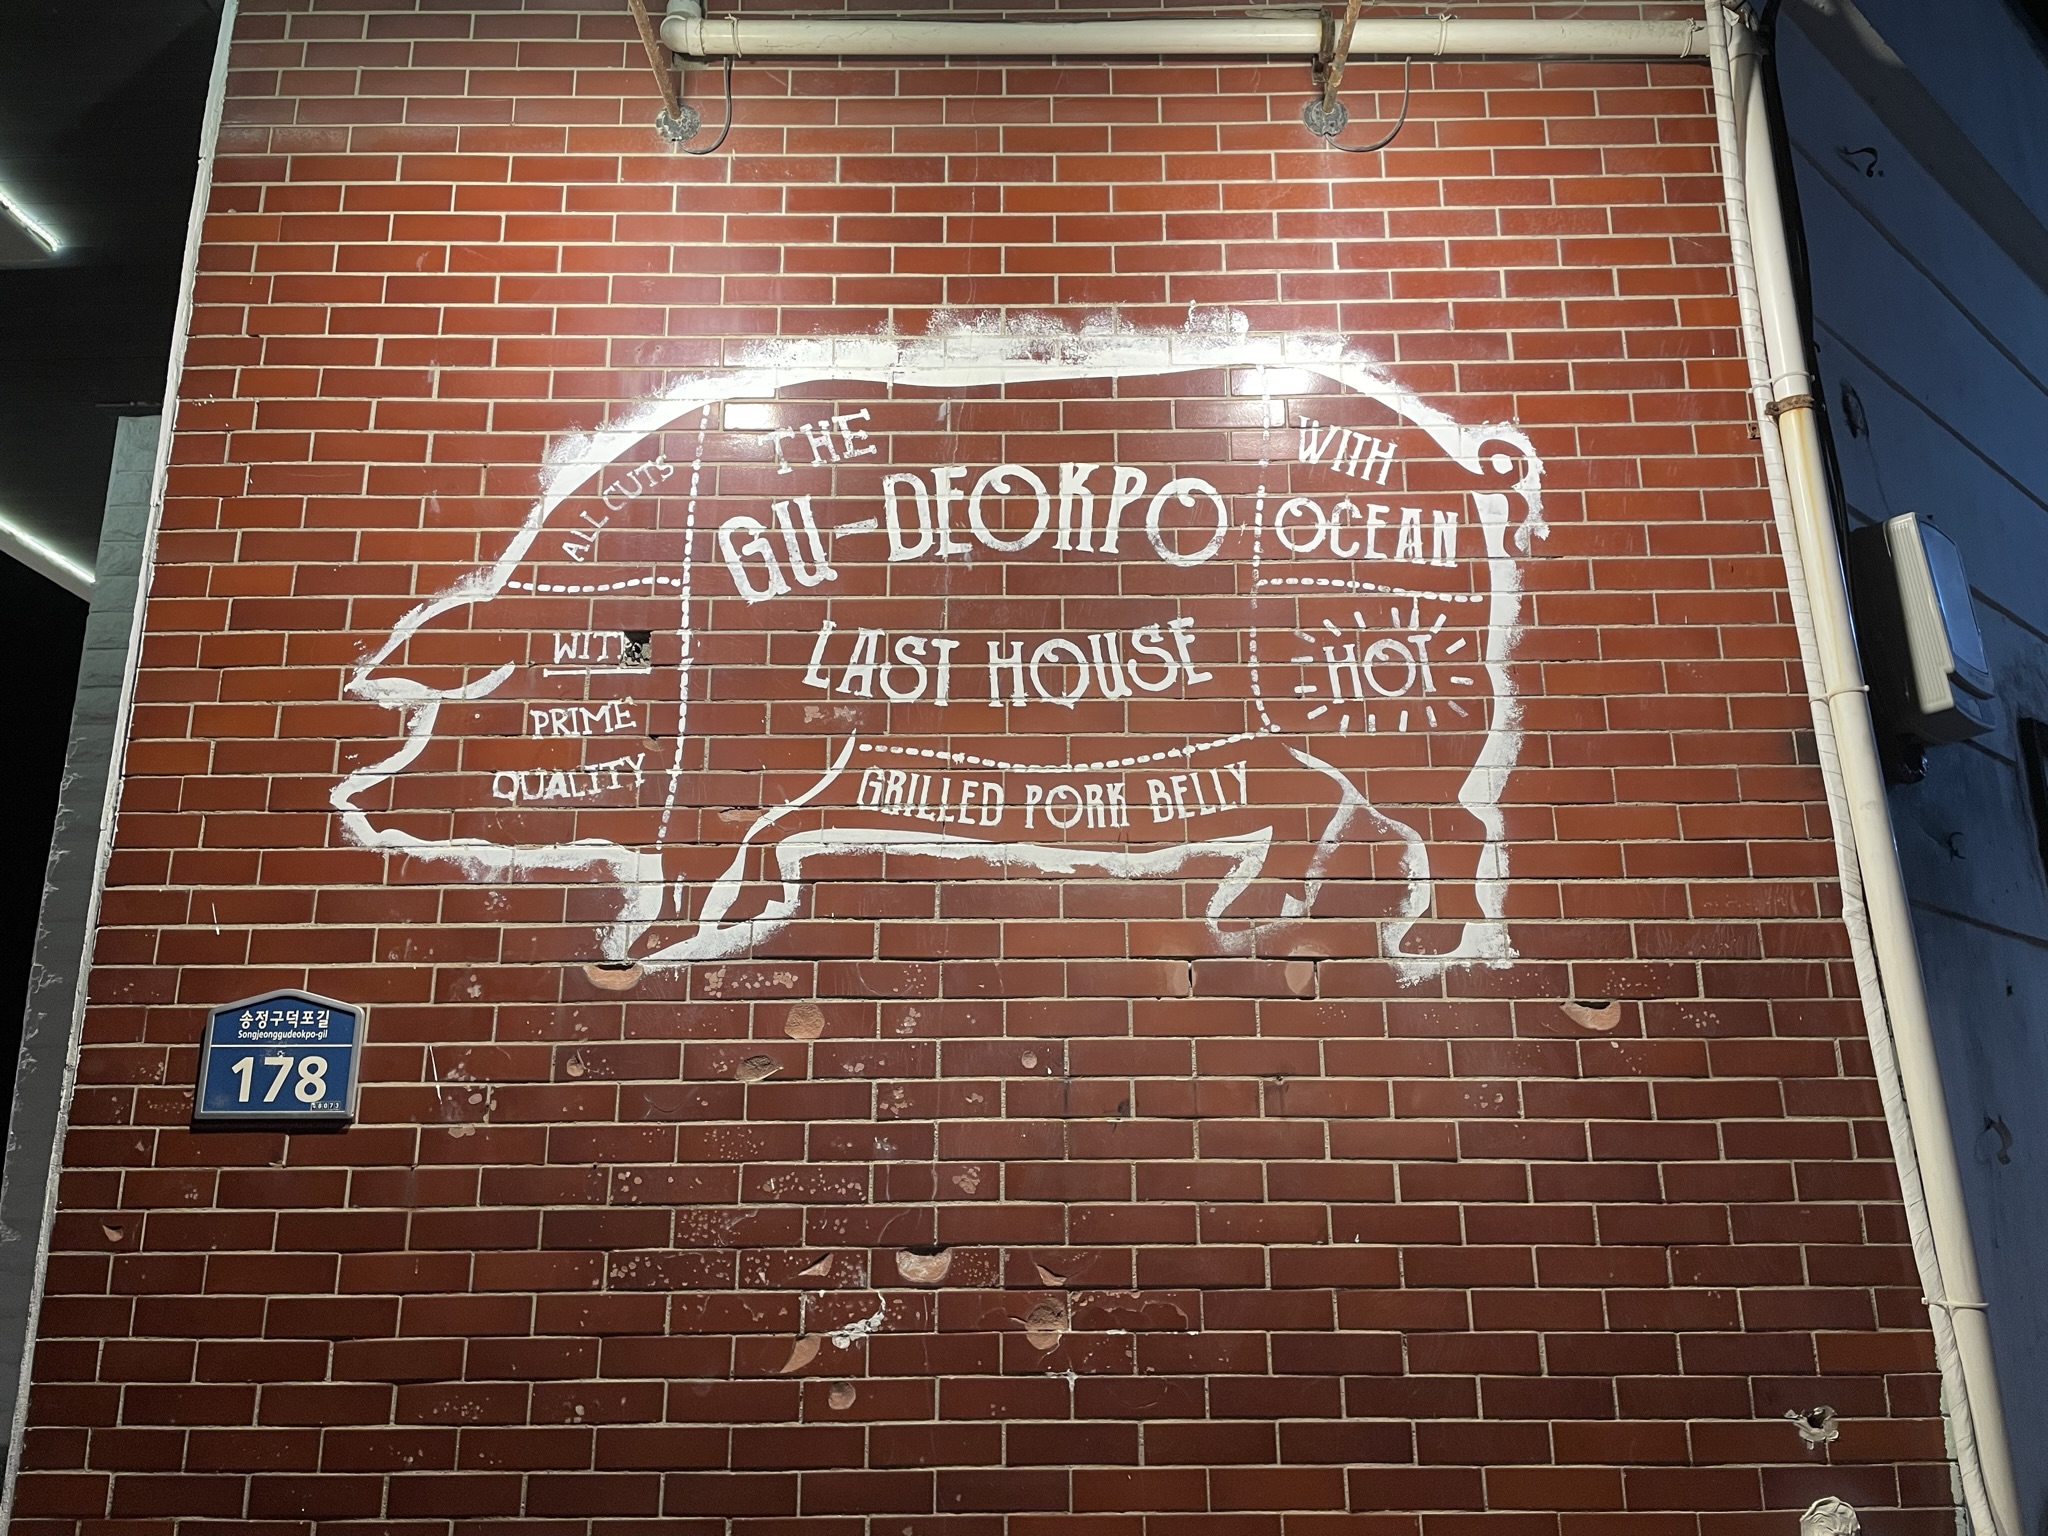 ALL CUTS
WITH
PRIME
QUALITY
THE
GU-DEOKPO
LAST HOUSE
GRILLED PORK BELLY
WITH
OCEAN
HOT
송정구덕포길
Songjeonggudeokpo-gil
178